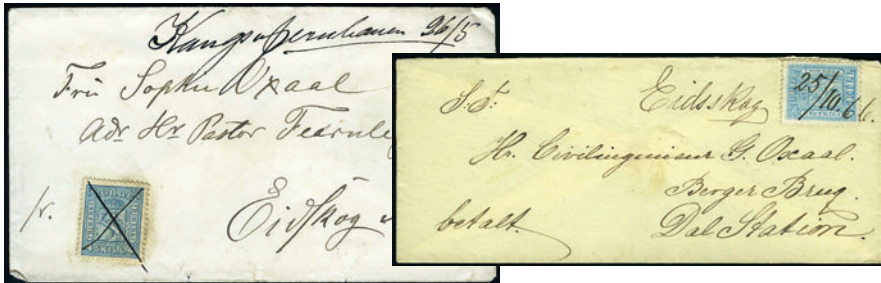 Kongsvingerbanen 26/5
Fru Sophie Oxaal
adr Hr Pastor Fearnley
Eidskog
fr.
4 SKILL
Eidsskog
25/10 66.
S.T.
Hr. Civilingenieur G. Oxaal.
Berger Brug.
betalt.
Dal Station.